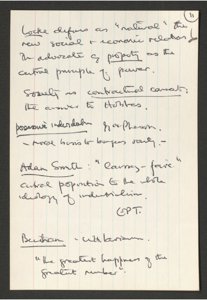 11
Locke defines as "natural" the
new social & economic relations
The advocate of property as the
central principle of power.
Society is contractual consent,
the answer to Hobbes.
possessive individualism Macpherson.
- moral basis to bourgeois society -
Adam Smith: "Laissez-faire"
central proposition to the whole
ideology of industrialism.
Bentham - utilitarianism.
"the greatest happiness of the
greatest number"